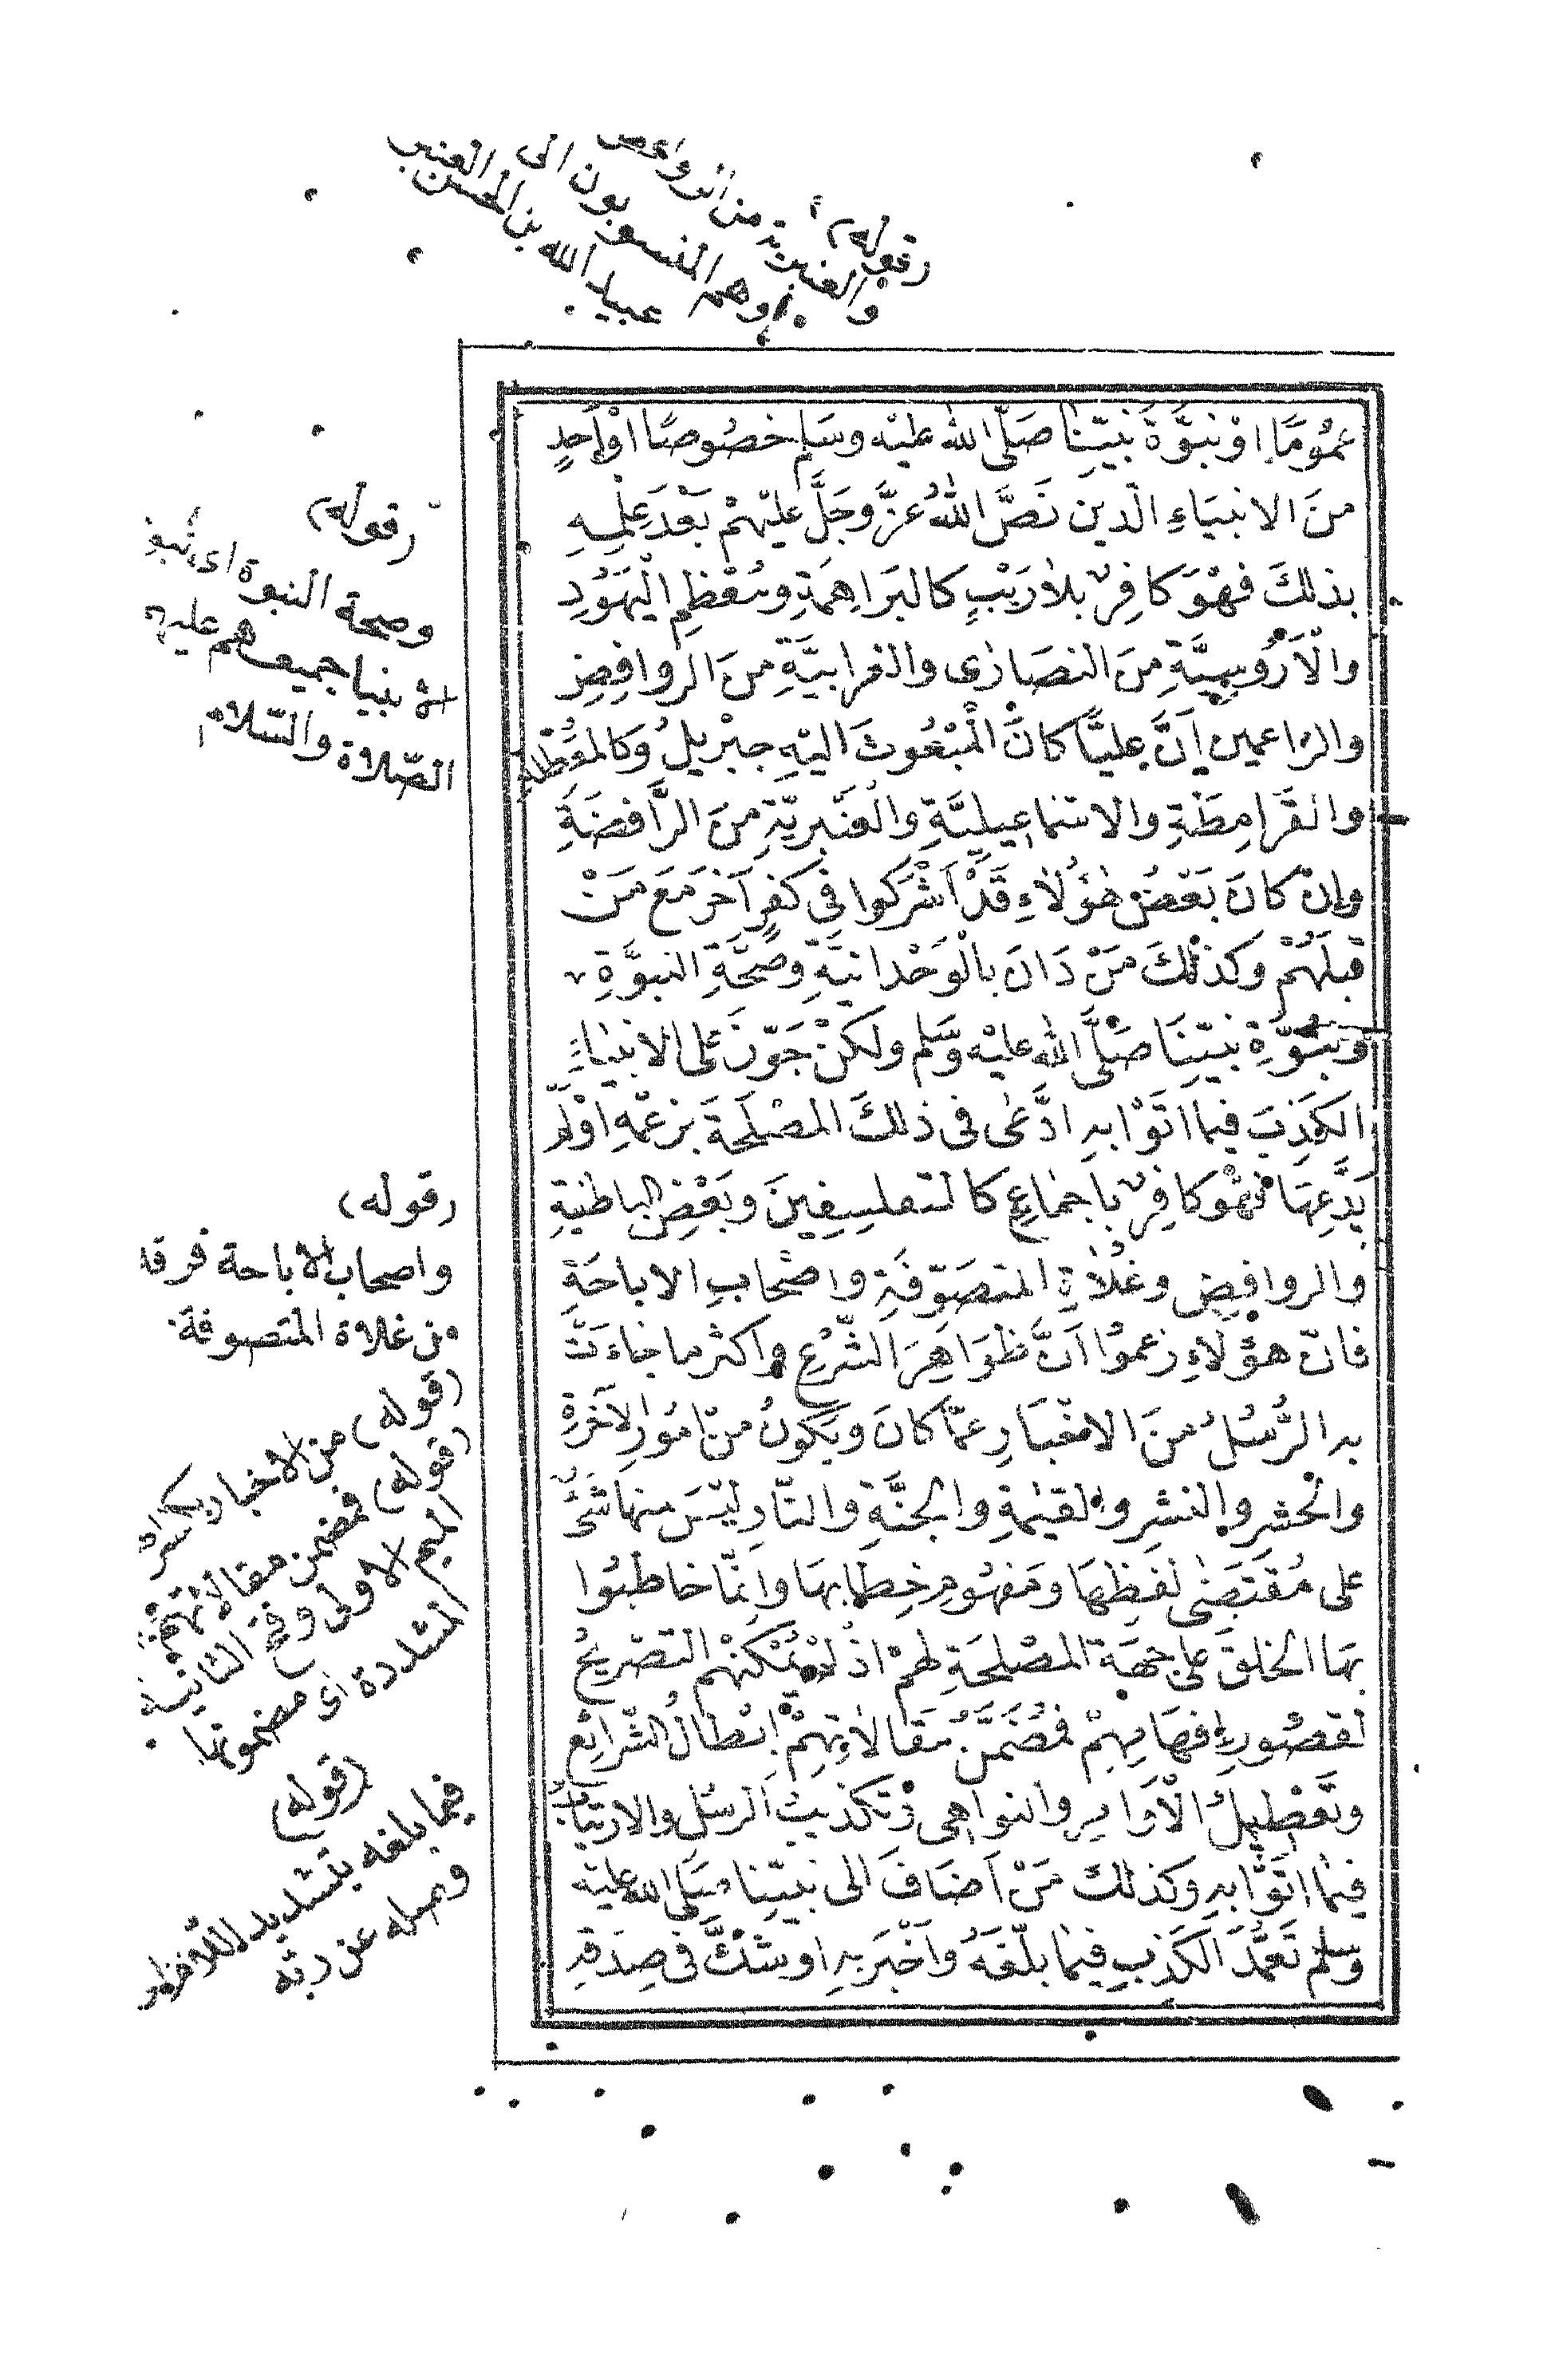 (قوله)
والعنبرية من الروافض
وهم المنسوبون الى
عبيد الله بن الحسن العنبرى
عُمُومًا اوْ نبوَّةَ نَبيّنَا صَلَّى اللهُ عليْه وسَلم خصُوصًا اوْ أحَدٍ
منَ الانبيَاءِ الّذين نَصَّ اللهُ عزَّ وجَلَّ عليْهمْ بَعْدَ عِلْمِهِ
بذلكَ فهْوَ كافِرٌ بلاَ رَيْبٍ كالبَرَاهمَةِ ومُعْظمِ الْيَهُودِ
والْاَرُوسِيَّةِ منَ النصَارٰى والغرابيَّةِ منَ الروافِضِ
والزاعمين اَنَّ عليًّا كانَ الْمبْعُوثَ اليْهِ جبْريلُ وكالمعَطّلةِ
والقَرَامِطَةِ والاسماعيليَّةِ والْعنْبريّةِ منَ الرَّافضَةِ
وإنْ كانَ بَعْضُ هٰؤُلاٰءِ قَدْ اَشْرَكوا فى كفرٍ آخَرَ مَعَ مَنْ
قبلَهُمْ وكذٰلكَ مَنْ دَانَ بالْوَحْدانيَّةِ وصحَّةِ النبوَّةِ
ونبُوّةِ نبيّنَا صَلَّى الله عليْه وسَلم ولكنْ جَوّزَ على الانبيَاءِ
الكَذِبَ فيما اتَوْا به ادَّعٰى فى ذلكَ المصْلَحَةَ بزعْمهِ اوْ لَمْ
يَدَّعِهَا فهْوَ كافِرٌ باجماعٍ كالمتفلسِفِينَ وبَعْضِ الباطنيةِ
والروافِضِ وغُلاٰةِ المتصَوّفَةِ واصْحابِ الاباحَةِ
فانّ هؤُلاَءِ زعموُا اَنَّ ظوَاهِرَ الشّرْعِ واكثر ما جاءَتْ
به الرُّسُلُ منَ الاخْبَارِ عمّا كانَ ويَكونُ منْ اُمُورِ الآخرةِ
والْحشرِ والنشرِ والقيٰمةِ والجنَّةِ والنّارِ ليْسَ منهَا شَئٌ
على مُقتَضٰى لفظِهَا ومَفهُومِ خِطابهَا وانّما خاطبُوا
بهَا الخلقَ على جهَةِ المصْلحَةِ لهمْ اذْ لمْ يمْكنْهم التصْريحُ
لقصُورِ افهَامِهِمْ فمُضَمَّنُ مَقَالاٰتِهِمْ اِبْطَالُ الشّرائِع
وتَعْطِيلُ الْاَوَامِرِ والنواهى وتكذيبُ الرسُلِ والارتيَابُ
فيمٰا اتَوْا بهِ وكذٰلكَ مَنْ اَضَافَ الى نبيّنا صَلى الله عليْهِ
وسلم تَعَمُّدَ الكَذِبِ فيمٰا بلّغَهُ واَخْبَر بهِ اوْ شَكَّ فى صِدْقهِ
(قوله)
وصحة النبوة اى نبوة
الانبيا جميعهم عليهم
الصّلاة والسّلام
(قوله)
واصحاب الاباحة فرقة
من غلاة المتصوفة
(قوله) من الاخبار بكسر
(قوله) فمضمن مقالاتهم
الميم الاولى وفتح الثانية
المشددة اى مضمونها
(قوله)
فيما بلغه بتشديد اللام
وصله عن ربّه